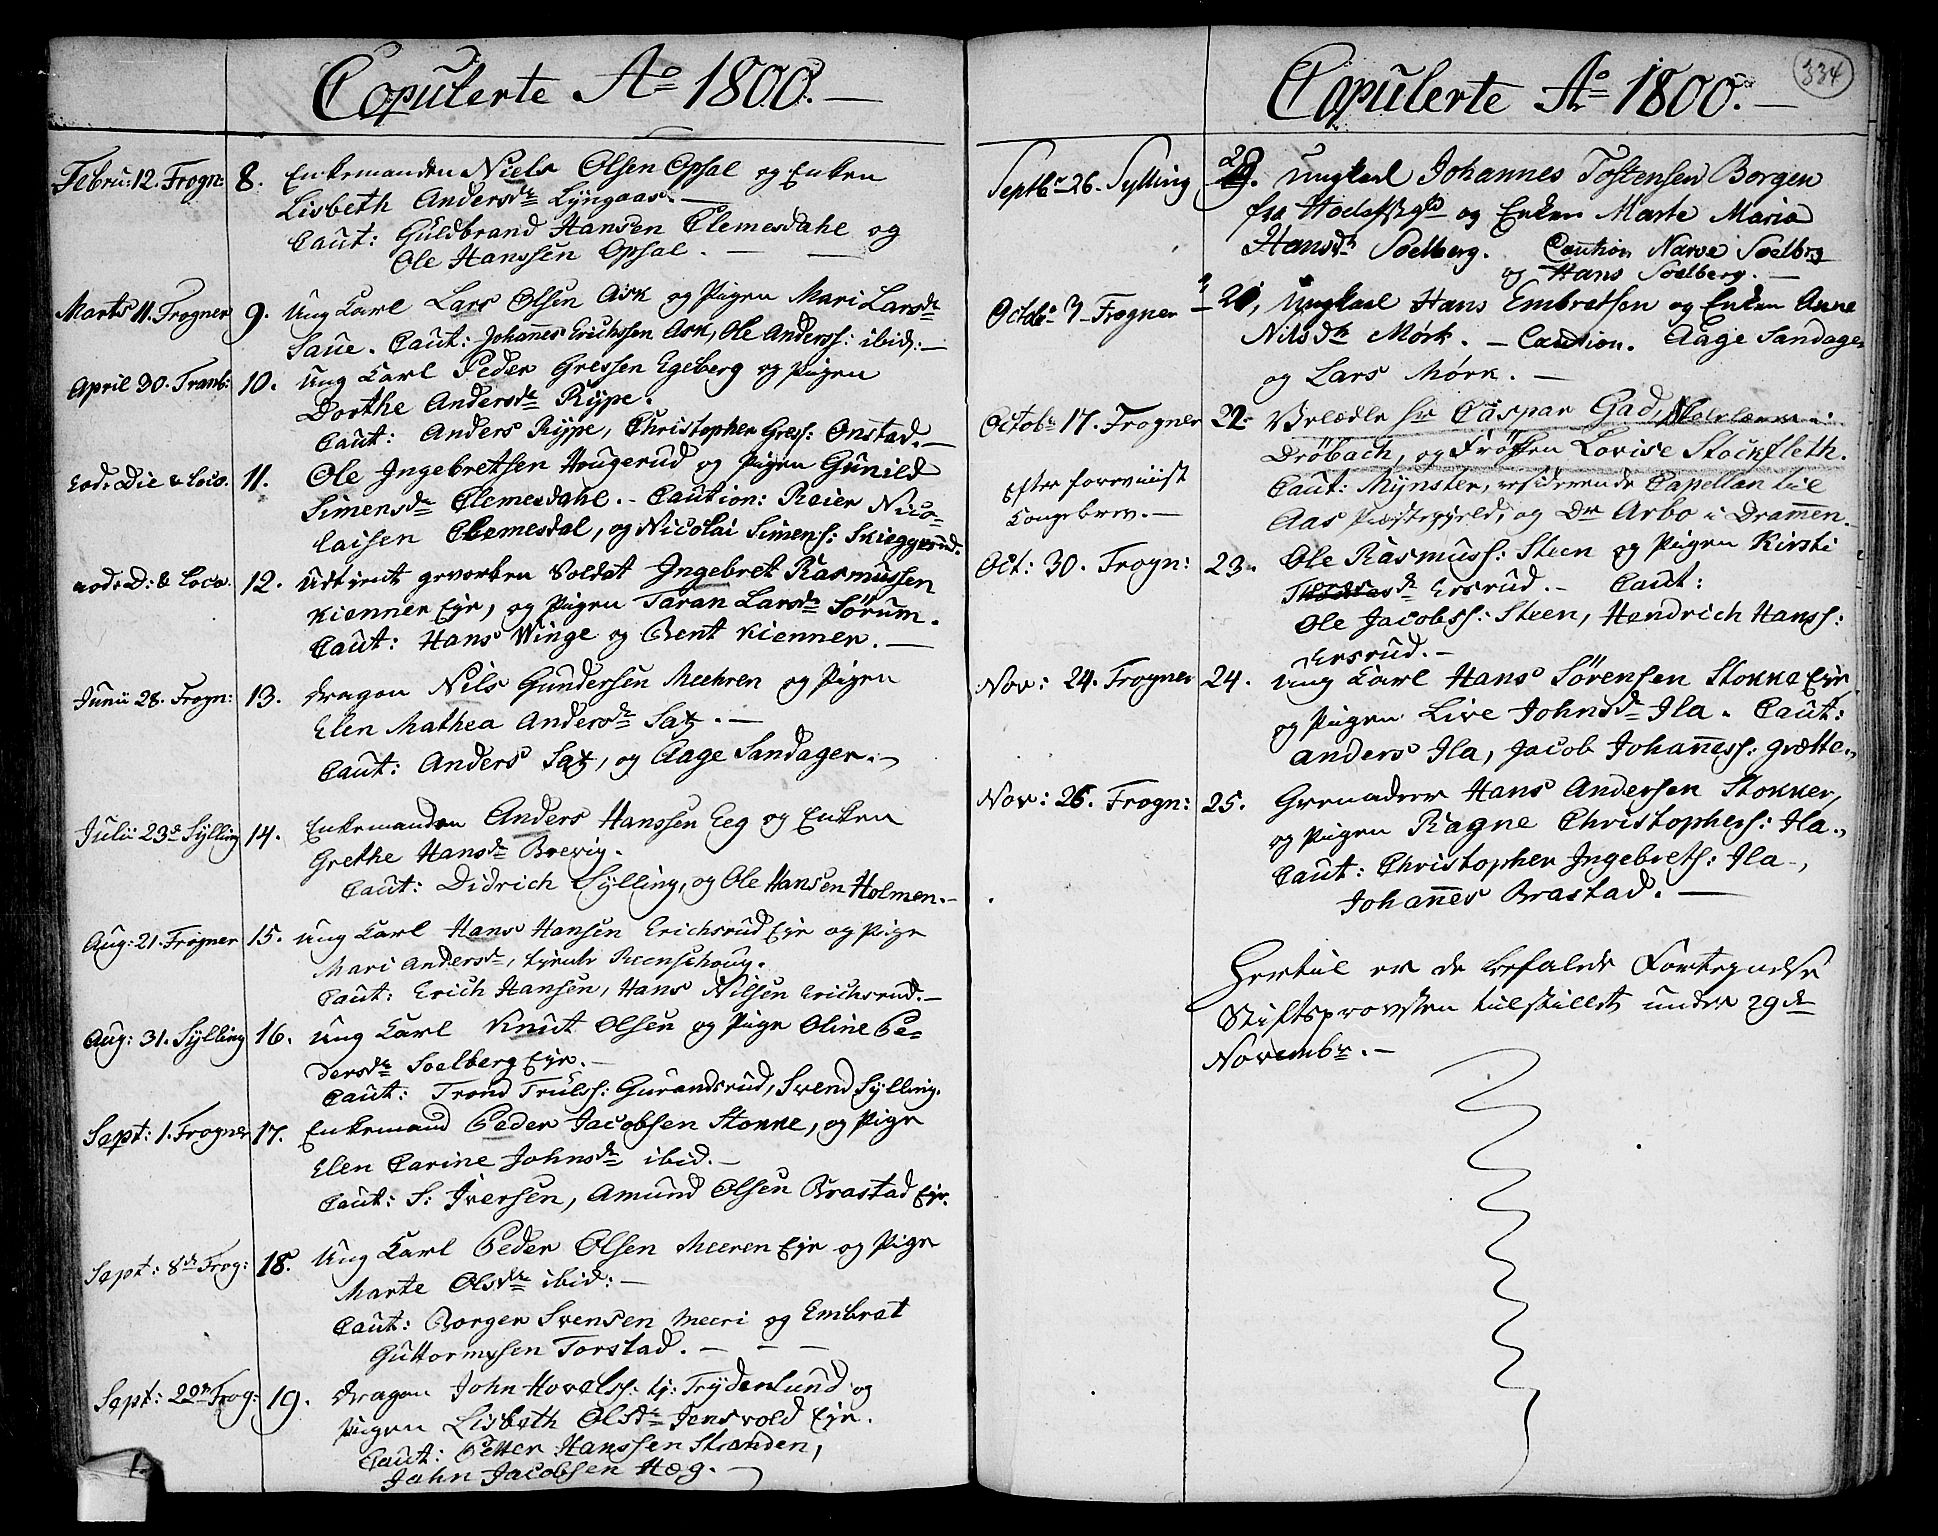 Copulerte Aº 1800.
Febru: 12. Frogn: 8. Enkemanden Niels Olsen Opsal og Enken
Lisbeth Andersdr Lyngaas.
Caut: Guldbrand Hansen Clemesdahl og
Ole Hanssen Opsal.
Marts 11. Frogner 9. Ung Karl Lars Olsen Ask og Pigen Mari Larsdr
Saue. Caut: Johañes Erichssen Ask, Ole Anderss: ibid:
April 30. Tranb: 10. Ung Karl Peder Gressen Egeberg og Pigen
Dorthe Andersdr Rype.
Caut: Anders Rype, Christopher Gress: Onstad.
eod: Die & Loco. 11. Ole Ingebretsen Hougerud og Pigen Gunild
Simensdr Clemesdahl. Caution: Reier Nico-
laisen Clemesdal, og Nicolai Simens: Skieggerud.
eod: D: & Loco. 12. Udtient geworben Soldat Ingebret Rasmussen
Kienner Eje, og Pigen Taran Larsdr Sörum.
Caut: Hans Winge og Bent Kienner.
Junii 28. Frogn: 13. Dragon Nils Gundersen Meehren og Pigen
Elen Mathea Andersdr Sax.
Caut: Anders Sax, og Aage Sandager.
Julii 23de Sylling 14. Enkemanden Anders Hanssen Eeg og Enken
Grethe Hansdr Brevig.
Caut: Didrich Sylling, og Ole Hansen Holmen.
Aug: 21. Frogner 15. Ung Karl Hans Hansen Erichsrud Eje og Pige
Mari Andersdr, tjente Reenschoug.
Caut: Erich Hansen, Hans Nilsen Erichsrud.
Aug: 31. Sylling 16. Ung Karl Knut Olsen og Pige Oline Pe-
dersdr Soelberg Eje.
Caut: Trond Trulss: Gurandsrud, Svend Sylling.
Sept: 1. Frogner 17. Enkemand Peder Jacobsen Stokke, og Pige
Elen Carine Johnsdr ibid.
Caut: S: Iversen, Amund Olsen Brastad Eje.
Sept: 8de Frog: 18. Ung Karl Peder Olsen Meeren Eje og Pige
Marte Olsdr ibid:
Caut: Borger Svensen Meeri og Embrat
Guttormsen Torstad.
Sept: 29de Frog: 19. Dragon John Hovelss: tj: Tryderlund og
Pigen Lisbeth Olsdr Jensvold Eje.
Caut: Petter Hanssen Stranden,
John Jacobsen Hæg.
334
Copulerte Aº 1800.
Septbr 26. Sylling 20. Ungkarl Johannes Tostensen Borgen
fra og Enken Marte Maria
Hansdr Soelberg. Caution Narve Soelbrg
og Hans Soelberg.
Octbr 3. Frogner 21, Ungkarl Hans Embretsen og Enken Anne
Nilsdr Mørk. Caution. Aage Sandager
og Lars Mørk.
Octob: 17. Frogner 22. Velædle Hr Caspar Gad, i
Dröbach, og Fröken Lovise Stockfleth.
Efter foreviist Caut: Mynster, residerende Capellan til
Kongebrev. Aas Præstegield, og Dr Arbo i Drammen.
Oct: 30. Frogn: 23. Ole Rasmuss: Steen og Pigen Kirsti
Ersrud. Caut:
Ole Jacobss: Steen, Hendrich Hanss:
Ersrud.
Nov: 24. Frogner 24. Ung Karl Hans Sörensen Stokke Eje
og Pigen Live Johnsdr Ila. Caut:
Anders Ila, Jacob Johañess: Grætte.
Nov: 26. Frogn: 25. Grenadeer Hans Andersen Stokker,
og Pigen Ragne Christophers: Ila.
Caut: Christopher Ingebrets: Ila,
Johañes Brastad.
Hertil er de befalede Fortegnelse
Stiftsprovsten tilstillet under 29de
Novembr.